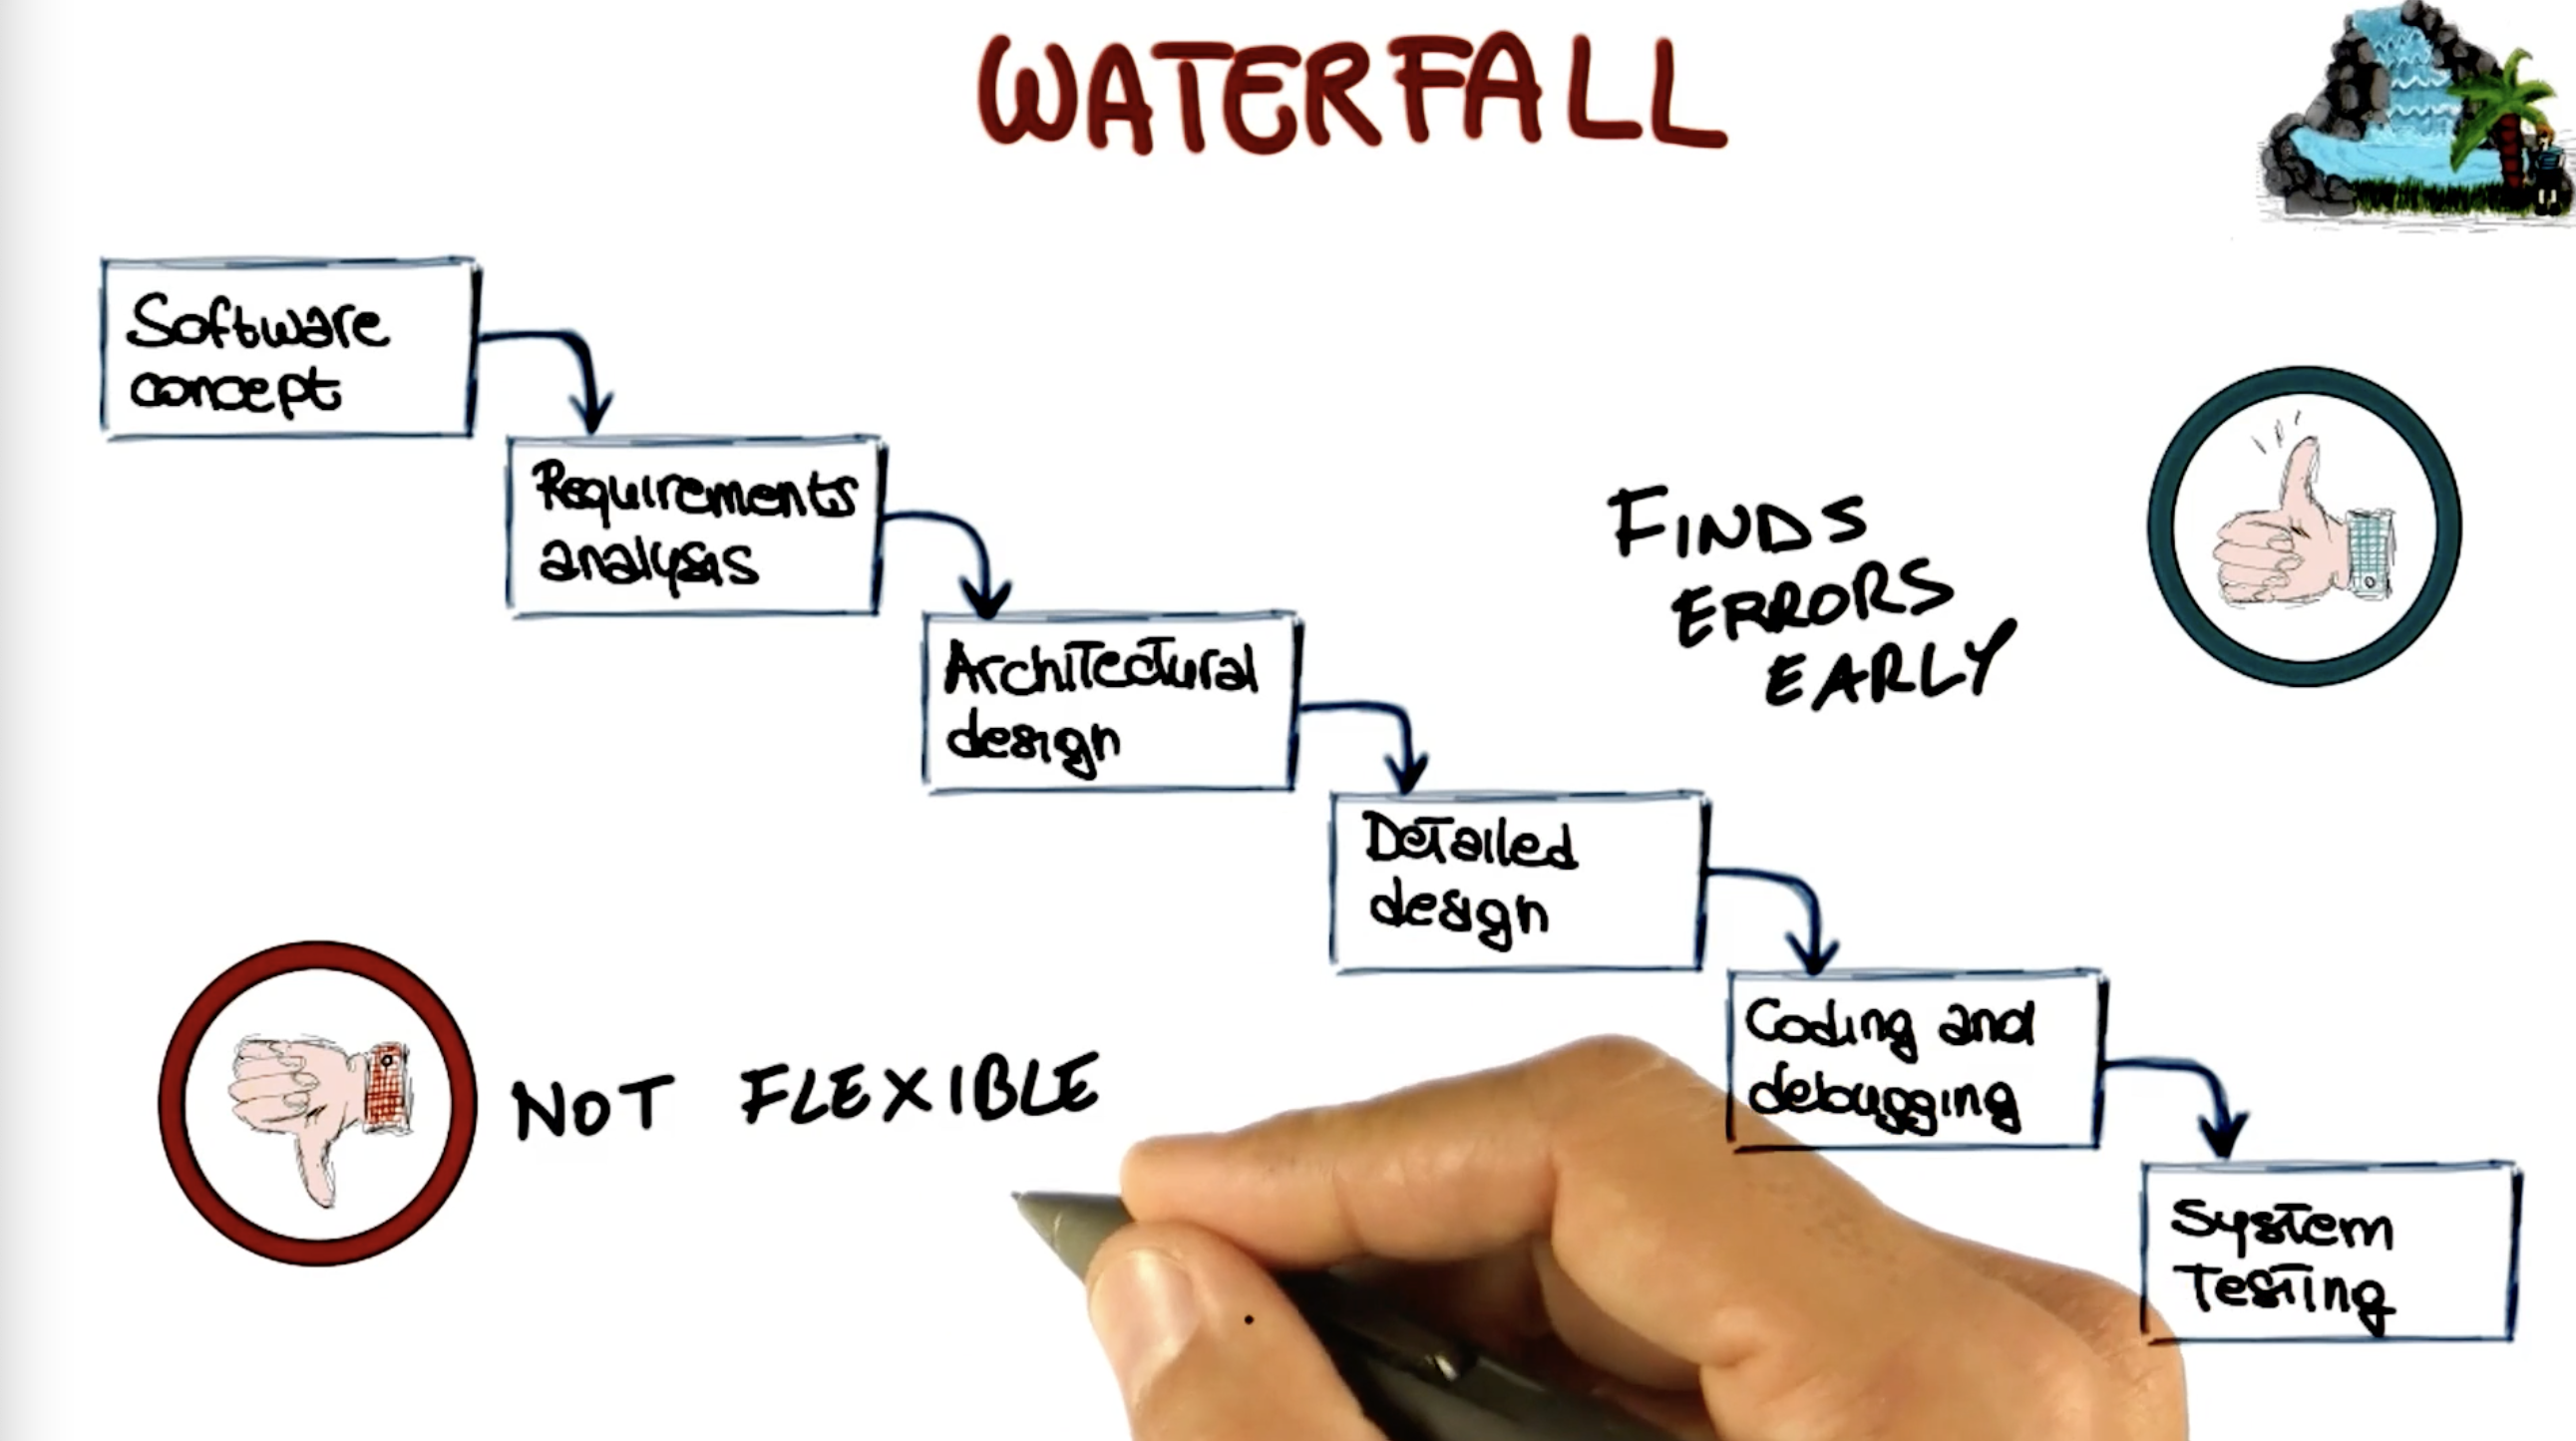 WATERFALL
Software
concept
Requirements
analysis
Architectural
design
Detailed
design
Coding and
debugging
System
Testing
FINDS
ERRORS
EARLY
NOT FLEXIBLE